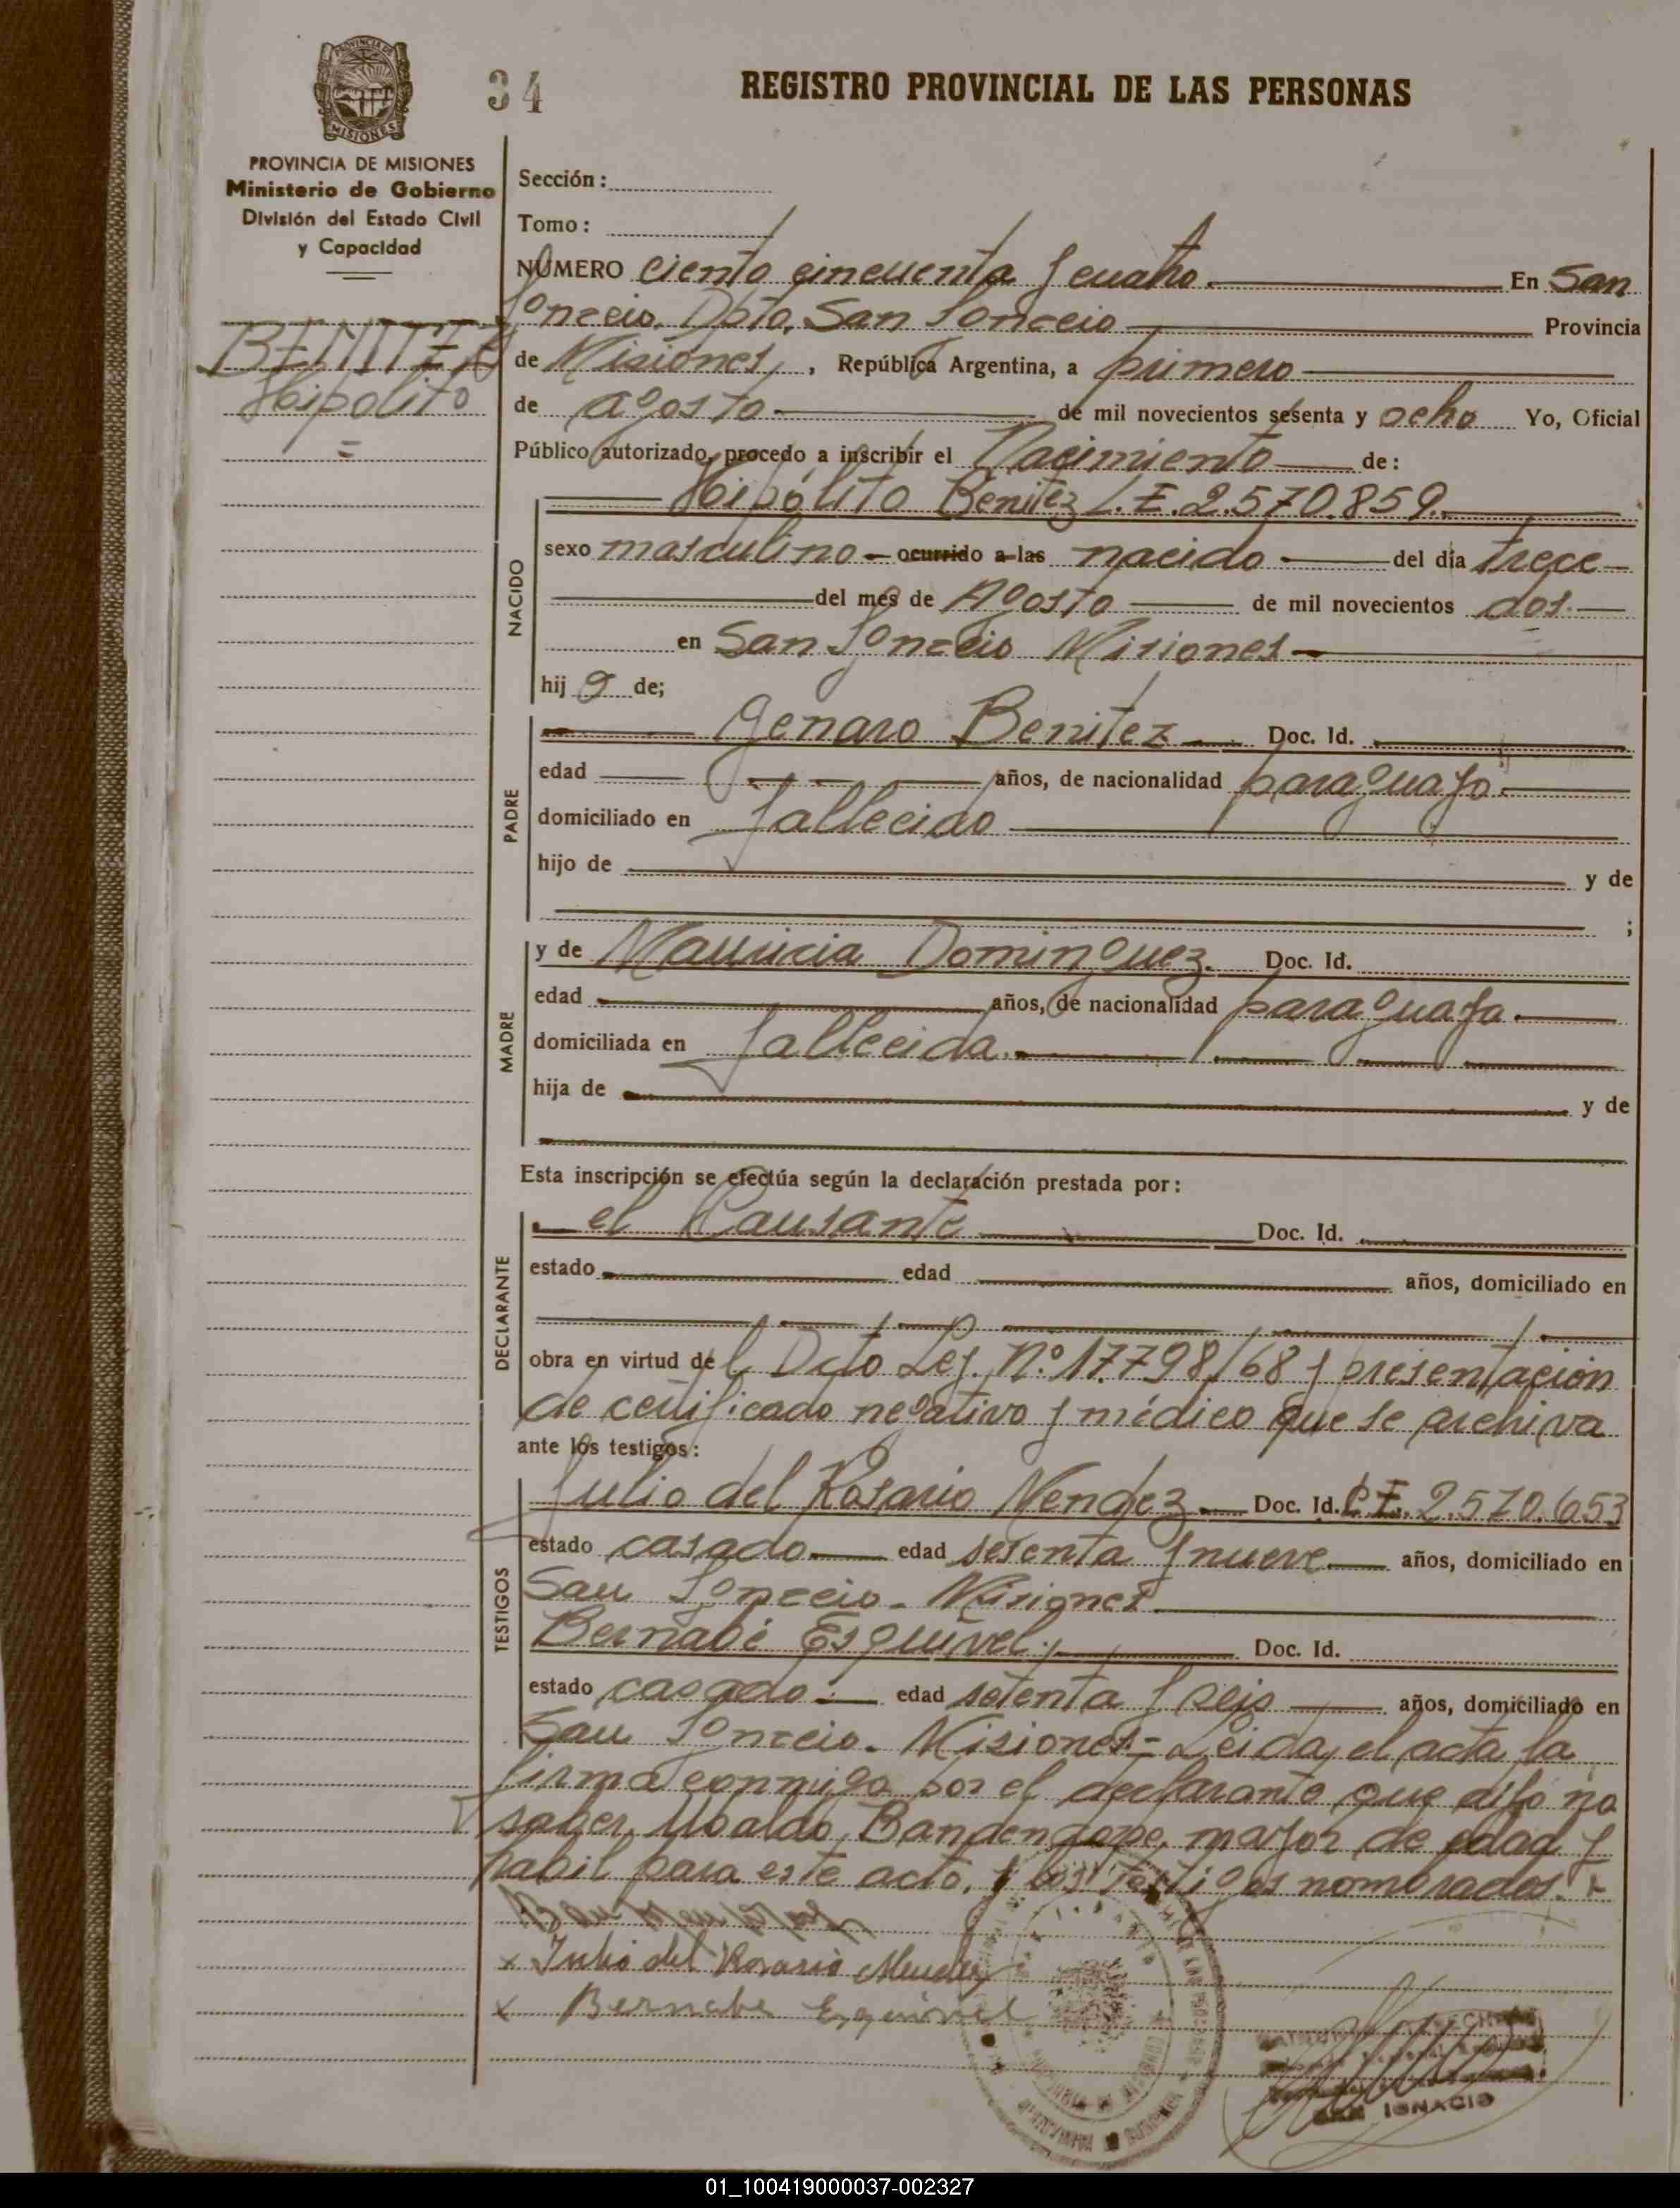 34
REGISTRO PROVINCIAL DE LAS PERSONAS
PROVINCIA DE MISIONES
MISIONES
PROVINCIA DE MISIONES
Ministerio de Gobierno
División del Estado Civil
y Capacidad
BENITEZ
Hipolito
Sección:
Tomo:
NÚMERO ciento cincuenta y cuatro. En San
Ignacio, Dpto, San Ignacio Provincia
de Misiones, , República Argentina, a primero
de agosto de mil novecientos sesenta y ocho Yo, Oficial
Público autorizado, procedo a inscribir el Nacimiento de:
Hipólito Benitez L.E. 2.570.859.
NACIDO
sexo masculino ocurrido a las nacido del día trece
del mes de Agosto de mil novecientos dos.
en San Ignacio Misiones
hij o de;
PADRE
Genaro Benitez Doc. Id.
edad años, de nacionalidad paraguayo.
domiciliado en fallecido
hijo de y de
;
MADRE
y de Mauricia Dominguez. Doc. Id.
edad años, de nacionalidad paraguaya.
domiciliada en fallecida.
hija de y de
Esta inscripción se efectúa según la declaración prestada por:
DECLARANTE
el Causante Doc. Id.
estado edad años, domiciliado en
obra en virtud del Dcto Ley. Nº 17.798/68 y presentación
de certificado negativo y médico que se archiva
ante los testigos:
TESTIGOS
Julio del Rosario Mendez Doc. Id. 2.570.653
estado casado edad sesenta y nueve años, domiciliado en
San Ignacio. Misiones
Bernabé Esquivel. Doc. Id.
estado casado. edad setenta y seis años, domiciliado en
San Ignacio. Misiones= Leida, el acta la
firma conmigo por el declarante que dijo no
saber, Ubaldo mayor de edad y
habil para este acto, y los testigos nombrados.
x Julio del Rosario Mendez
x Bernabe Esquivel
SAN IGNACIO
01_100419000037-002327